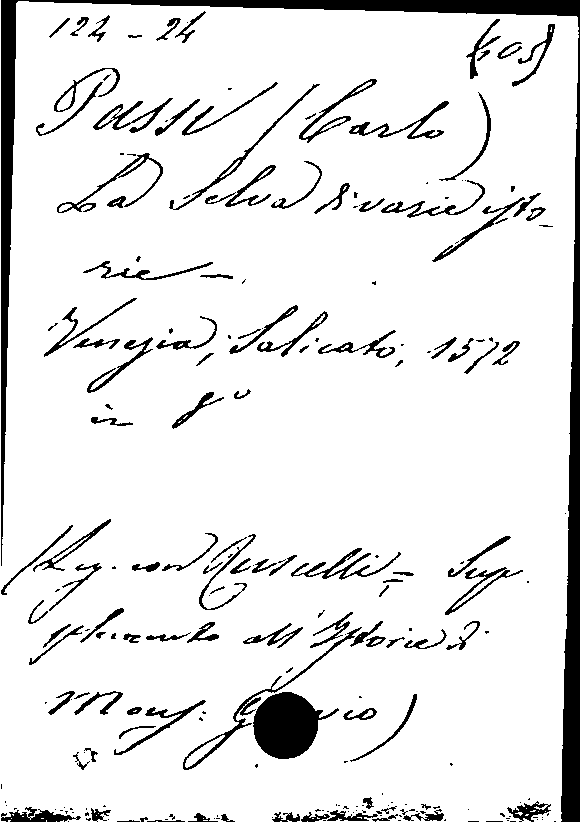 124 - 24 (405)
Passi (Carlo)
La Selva di varie isto-
rie -
Venezia, Salicato, 1572
in 8º
(Leg. con Ruscelli = Sup
plemento all'Istorie di
Mons: